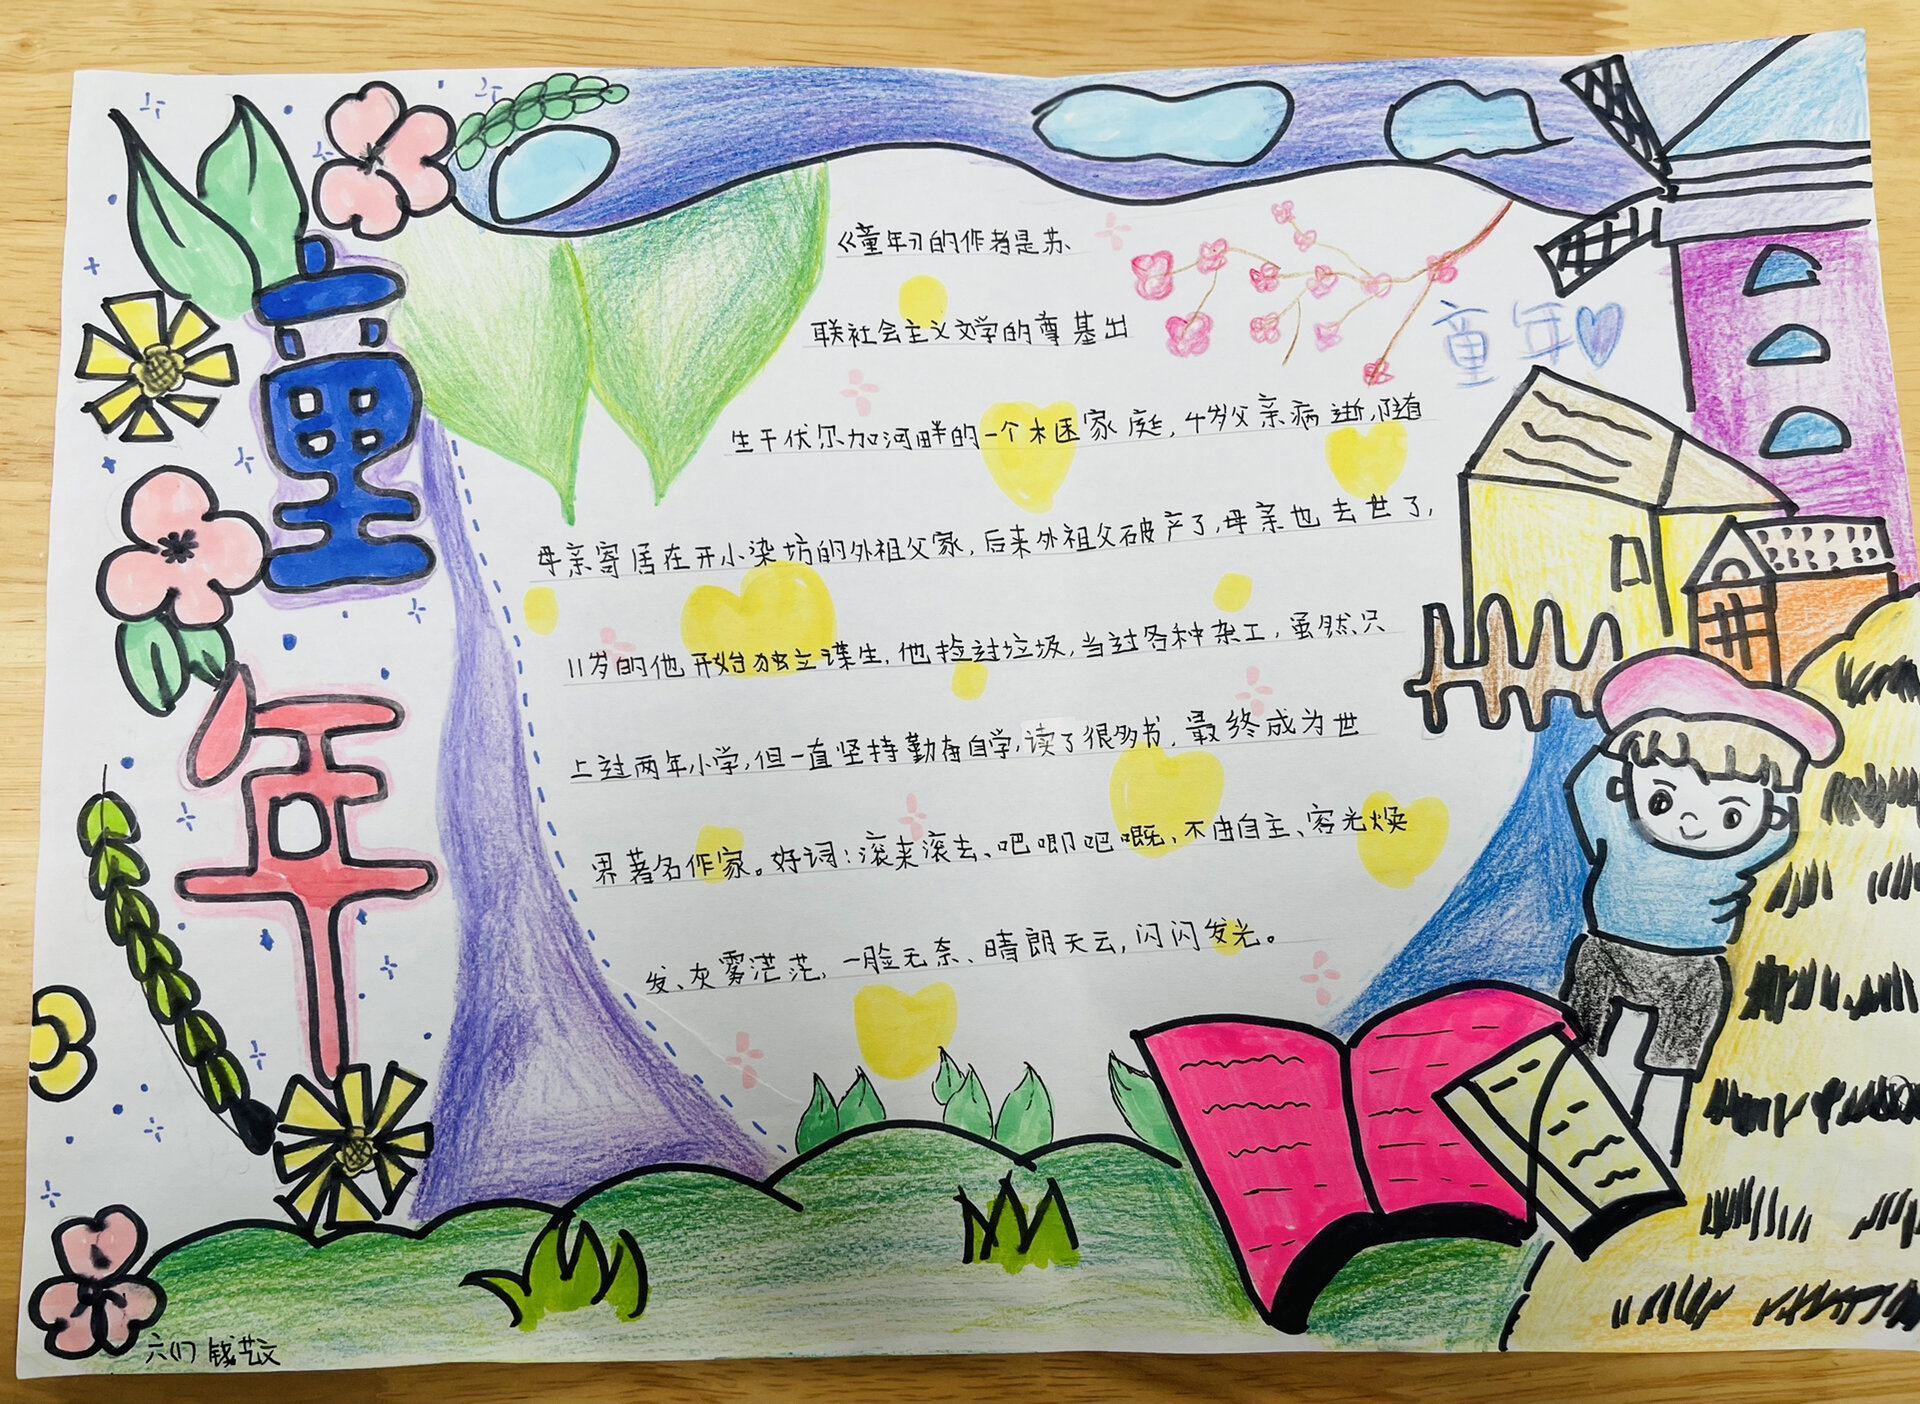 童年
《童年》的作者是苏
联社会主义文学的尊基出
童年
生于伏尔加河畔的一个木匠家庭,4岁父亲病逝,随
母亲寄居在开小染坊的外祖父家,后来外祖父破产了,母亲也去世了,
11岁的他开始独立谋生,他捡过垃圾,当过各种杂工,虽然只
上过两年小学,但一直坚持勤奋自学,读了很多书,最终成为世
界著名作家。好词:滚来滚去、吧唧吧嘰、不由自主、容光焕
发、灰雾茫茫,一脸无奈、晴朗天云,闪闪发光。
六(1) 钱艺文